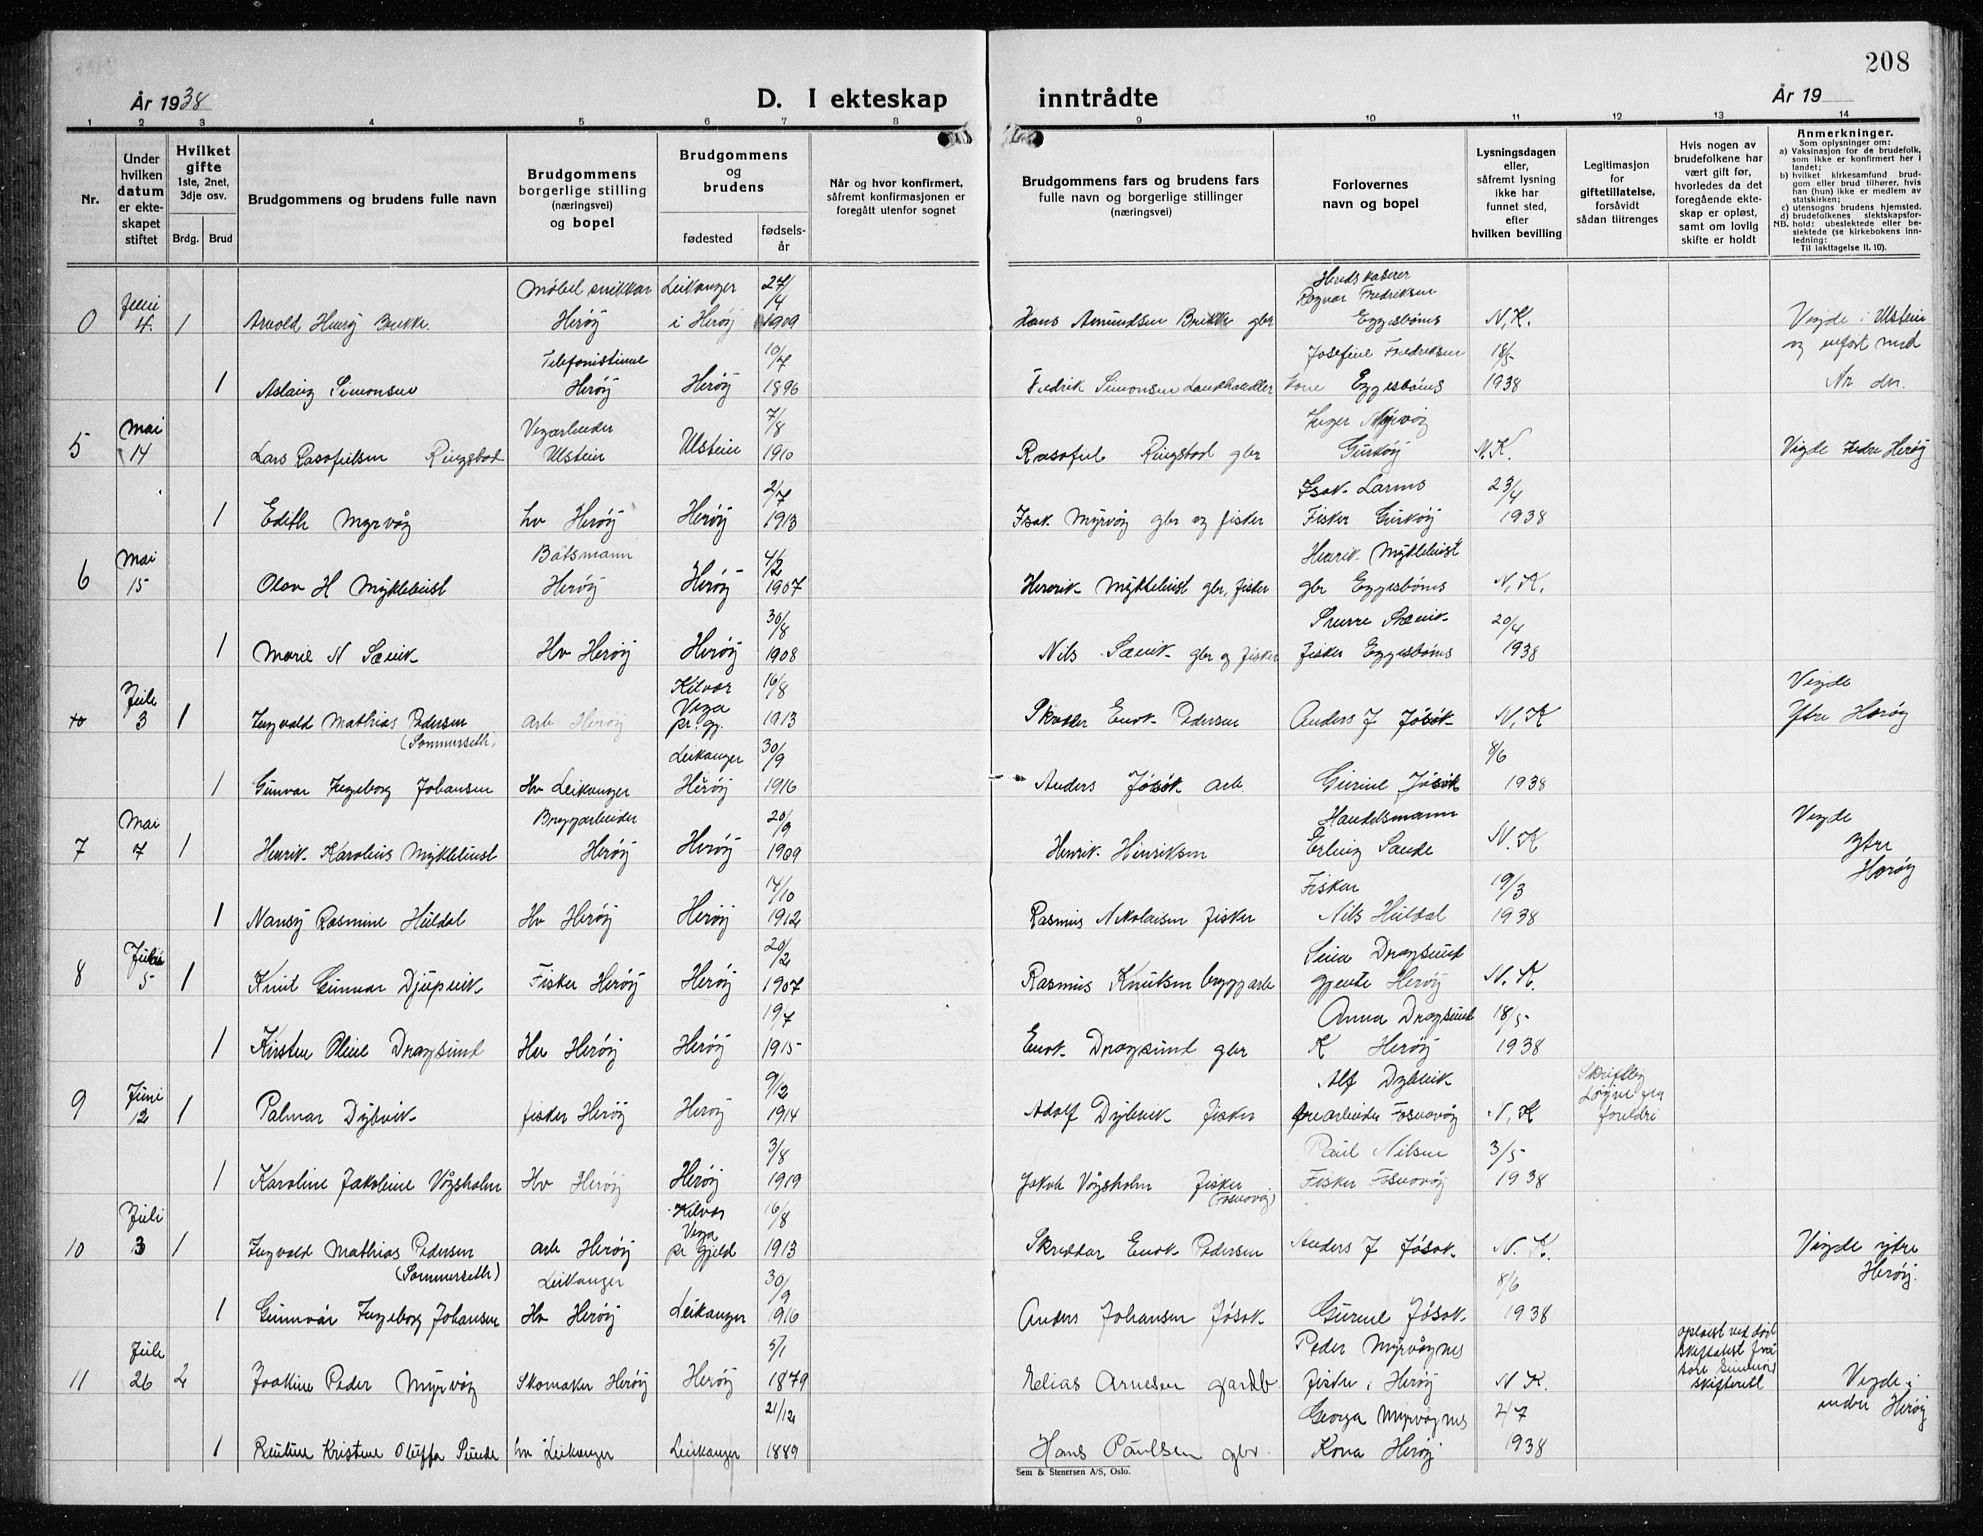 208
År 1938
D. I ekteskap
inntrådte
År 19
1 2 3 4 5 6 7 8 9 10 11 12 13 14
Nr.
Under hvilken datum er ekteskapet stiftet
Hvilket gifte 1ste, 2net, 3dje osv.
Brdg. Brud
Brudgommens og brudens fulle navn
Brudgommens borgerlige stilling (næringsvei) og bopel
Brudgommens og brudens
fødested
fødselsår
Når og hvor konfirmert, såfremt konfirmasjonen er foregått utenfor sognet
Brudgommens fars og brudens fars fulle navn og borgerlige stillinger (næringsvei)
Forlovernes navn og bopel
Lysningsdagen eller, såfremt lysning ikke har funnet sted, efter hvilken bevilling
Legitimasjon for giftetillatelse, forsåvidt sådan tiltrenges
Hvis nogen av brudefolkene har vært gift før, hvorledes da det foregående ekteskap er opløst, samt om lovlig skifte er holdt
Anmerkninger.
Som oplysninger om:
a) Vaksinasjon for de brudefolk, som ikke er konfirmert her i landet;
b) hvilket kirkesamfund brudgom eller brud tilhører, hvis han (hun) ikke er medlem av statskirken;
c) utensogns brudens hjemsted.
d) brudefolkenes slektskapsforhold: ubeslektede eller beslektede (se kirkebokens innledning:
NB.
Til iakttagelse II. 10).
Møbelsnikkar Leikanger 27/4
Ragnar Fredriksen
0 Juni 4. 1 Arvold Henry Brekke. Herøy i Herøy 1909 Hans Amundsen Brekke gbr Eggesbønes N.K. Vigde i Ulstein
Telefonistinne 10/7 Josefine Fredriksen 18/5 og innført med
1 Aslaug Simonsen Herøy Herøy 1896 Fredrik Simonsen Landhandler Kone Eggesbønes 1938
Vegarbeider 7/8 Inger Myrvåg
5 Mai 14 Lars Rasofielsen Ringstad Ulstein Ulstein 1910 Rasofiel Ringstad gbr Gurskøy N.K. Vigde Indre Herøy
2/7 Isak Larsns 23/4
1 Edith Myrvåg hv Herøy Herøy 1913 Isak Myrvåg gbr og fisker Fisker Gurskøy 1938
Båtsmann 4/2 Henrik Myklebust
6 Mai 15 Olav H Myklebust Herøy Herøy 1907 Henrik Myklebust gbr, fisker gbr Eggesbønes N.K.
30/8 Sverre Sævik 20/4
1 Marie N Sævik Hv Herøy Herøy 1908 Nils Sævik gbr og fisker fisker Eggesbønes 1938
Kilvær Vega pr. gj. 16/8 Vigde
10 Juli 3 1 Ingvald Mathias Pedersen (Sommerseth) arb Herøy 1913 Skredder Enok Pedersen Anders J Jøsok N.K Ytre Herøy
Leikanger 30/9 8/6
1 Gunvor Ingeborg Johansen Hv Leikanger Herøy 1916 Anders Jøsok arb. Gurine Jøsok 1938
Bryggarbeider 20/9 Handelsmann Vigde
7 Mai 7 1 Henrik Karolius Myklebust Herøy Herøy 1909 Henrik Hinriksen Erling Sande N.K Ytre Herøy
14/10 Fisker 19/3
1 Nansy Rasmine Huldal Hv Herøy Herøy 1912 Rasmus Nikolaisen fisker Nils Huldal 1938
20/2 Sina Dragsund
8 Juni 5 1 Knut Gunnar Djupvik Fisker Herøy Herøy 1907 Rasmus Knutsen bryggarb gjente Herøy N.K.
19/7 Anna Dragsund 18/5
1 Kirsten Oline Dragsund Hv Herøy Herøy 1915 Enok Dragsund gbr K Herøy 1938
9/12 Alf Dybvik Skriftleg
9 Juni 12 1 Palmar Dybvik fisker Herøy Herøy 1914 Adolf Dybvik fisker Fosnavåg N.K Løyve fra foreldre
3/8 Paul Nilsen 3/5
1 Karoline Jakobine Vågsholm Hv Herøy Herøy 1919 Jakob Vågsholm fisker (Fosnavåg) Fisker Fosnavåg 1938
Kilvær Vega 16/8
10 Juli 3 1 Ingvald Mathias Pedersen (Sommerseth) arb Herøy pr Gjeld 1913 Skreddar Enok Pedersen Anders J Jøsok N.K. Vigde ytre Herøy.
Leikanger 30/9 8/6
1 Gunnvår Ingeborg Johansen Hv Herøy Leikanger 1916 Anders Johansen Jøsok Gurine Jøsok 1938
5/1 Peder Myrvågnes opløist ved død
11 Juli 26 2 Joakim Peder Myrvåg Skomaker Herøy Herøy 1879 Elias Arnesen gardb. fisker i Herøy N K. skifterett Vigde i indre Herøy
21/12 Georga Myrvågnes 2/7
1 Rentine Kristine Oluffa Sunde hv Leikanger Leikanger 1889 Hans Paulsen gbr. Kona Herøy 1938
Sem & Stenersen A/S, Oslo.